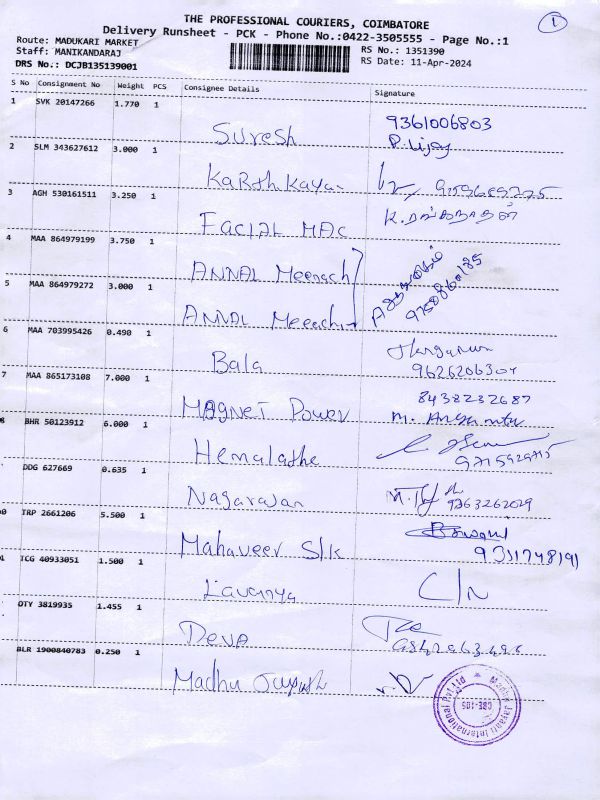 1
THE PROFESSIONAL COURIERS, COIMBATORE
Delivery Runsheet - PCK - Phone No.:0422-3505555 - Page No.:1
Route: MADUKARI MARKET
RS No.: 1351390
Staff: MANIKANDARAJ
RS Date: 11-Apr-2024
DRS No.: DCJB135139001
S No Consignment No Weight PCS Consignee Details Signature
1 SVK 20147266 1.770 1 Suresh 9361006803
P. Vijay
2 SLM 343627612 3.000 1 Karthikayan
3 AGH 530161511 3.250 1 FACIAL MAC K. ரங்கநாதன்
4 MAA 864979199 3.750 1 ANNAL Meenach
5 MAA 864979272 3.000 1 ANNAL
6 MAA 703995426 0.490 1 Bala
9626206304
7 MAA 865173108 7.000 1 MAGNET Power 8438232687
8 BHR 50123912 6.000 1 Hemalathe
DDG 627669 0.635 1 Nagarajan
9763262029
0 TRP 2661206 5.500 1 Mahaveer Silk
TCG 40933051 1.500 1 Lavanya
OTY 3819935 1.455 1 DEVA
BLR 1900840783 0.250 1 Madhu
Madhu Jayanti International Pvt. Ltd
CBE-105